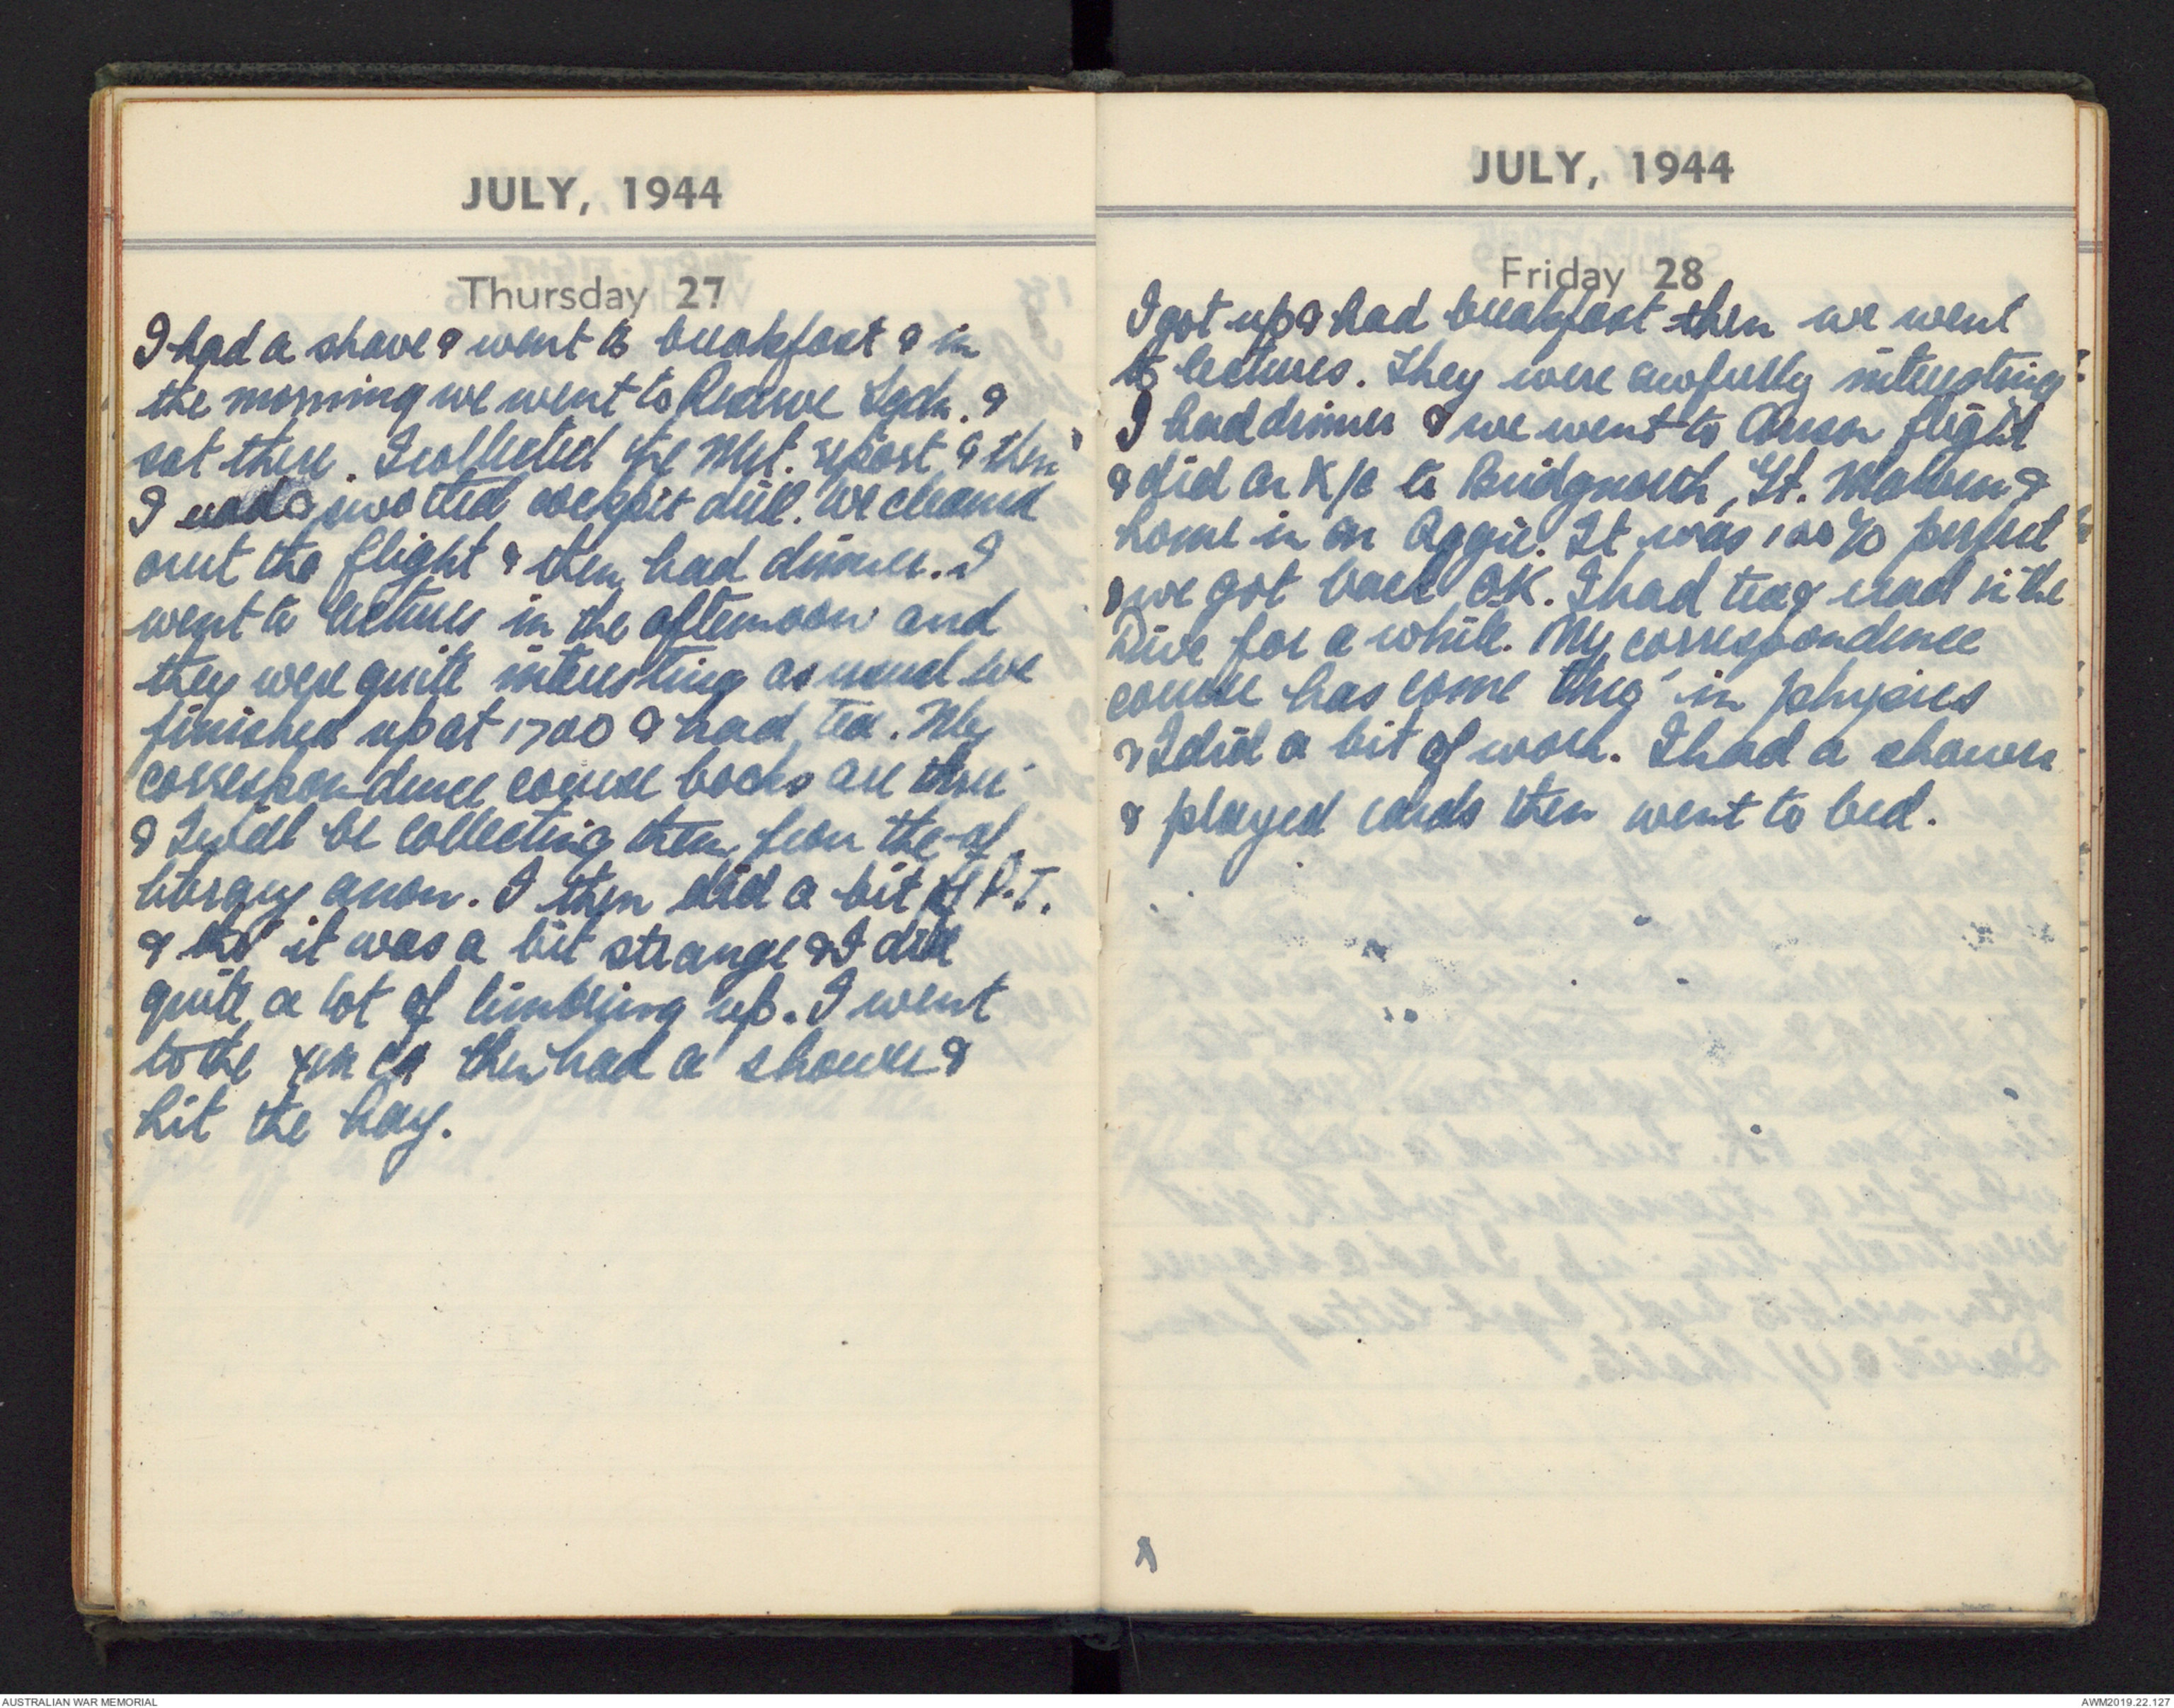 JULY, 1944
Thursday 27
I had a shave & went to breakfast & in
the morning we went to Reserve Sqdn. &
sat there. I collected the Met. report & then
I read & swotted cockpit drill. We cleaned
out the flight & then had dinner. I
went to lectures in the afternoon and
they were quite interesting as usual we
finished up at 1700 & had tea. My
correspondence course books are thru'
& I will be collecting them from the
library anon. I then did a bit of P.T.
& tho' it was a bit strange & I did
quite a lot of limbering up. I went
to the then had a shower &
hit the hay.
JULY, 1944
Friday 28
I got up & had breakfast then we went
to lectures. They were awfully interesting
I had dinner & we went to Anson flight
& did an X/C to Bridgnorth, Gt. Malvern &
home in an Aggie. It was 100% perfect
& we got back OK. I had tea & read in the
Dive for a while. My correspondence
course has come thro' in physics
& I did a bit of work. I had a shower
& played cards then went to bed.
AUSTRALIAN WAR MEMORIAL
AWM2019.22.127